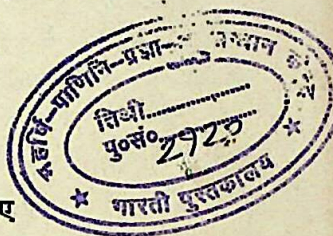 महर्षि-पाणिनि-प्रज्ञा-
तिथी..............
पु०सं०..............
2920
भारती पुस्तकालय
ए